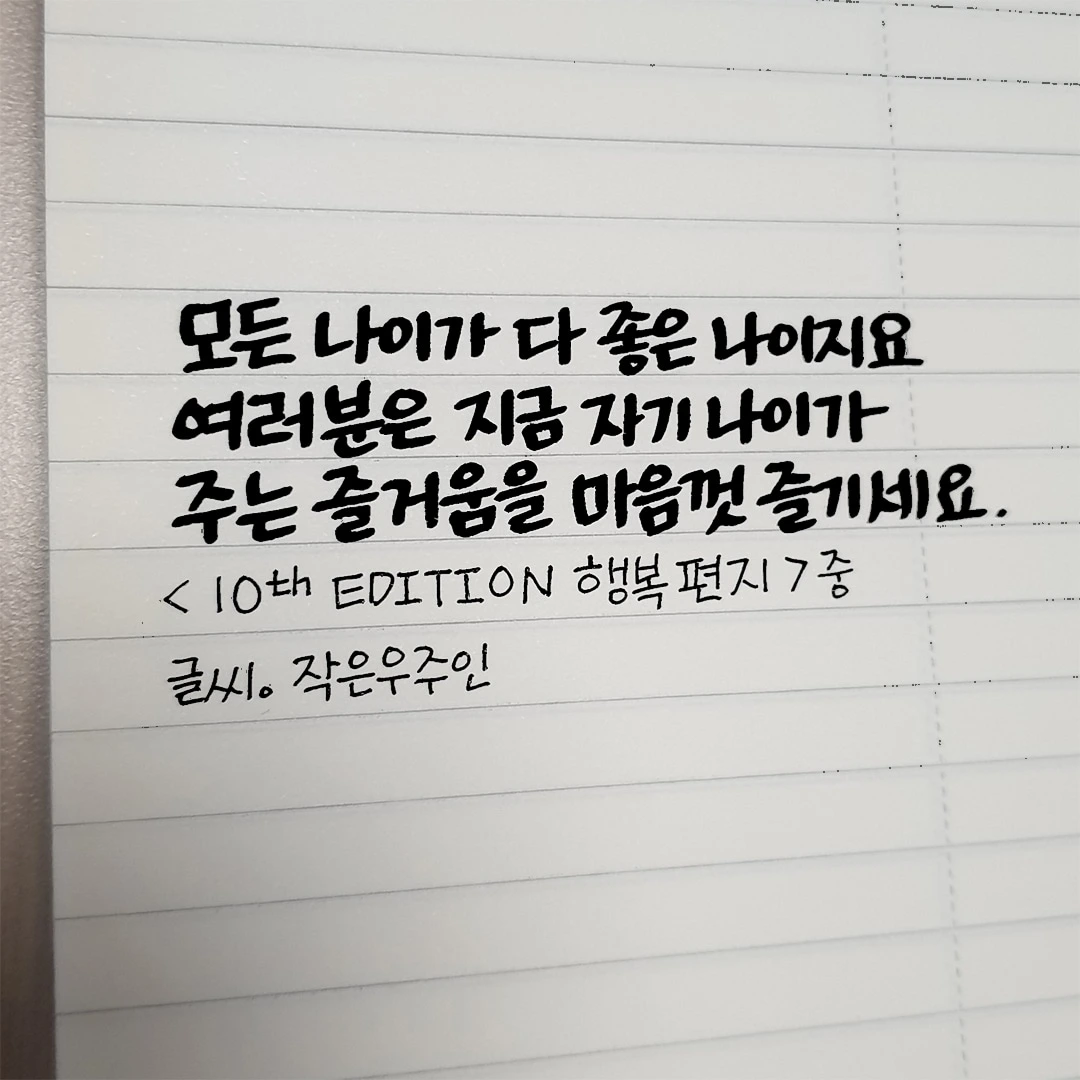 모든 나이가 다 좋은 나이지요
여러분은 지금 자기 나이가
주는 즐거움을 마음껏 즐기세요.
<10th EDITION 행복편지>중
글씨。 작은우주인